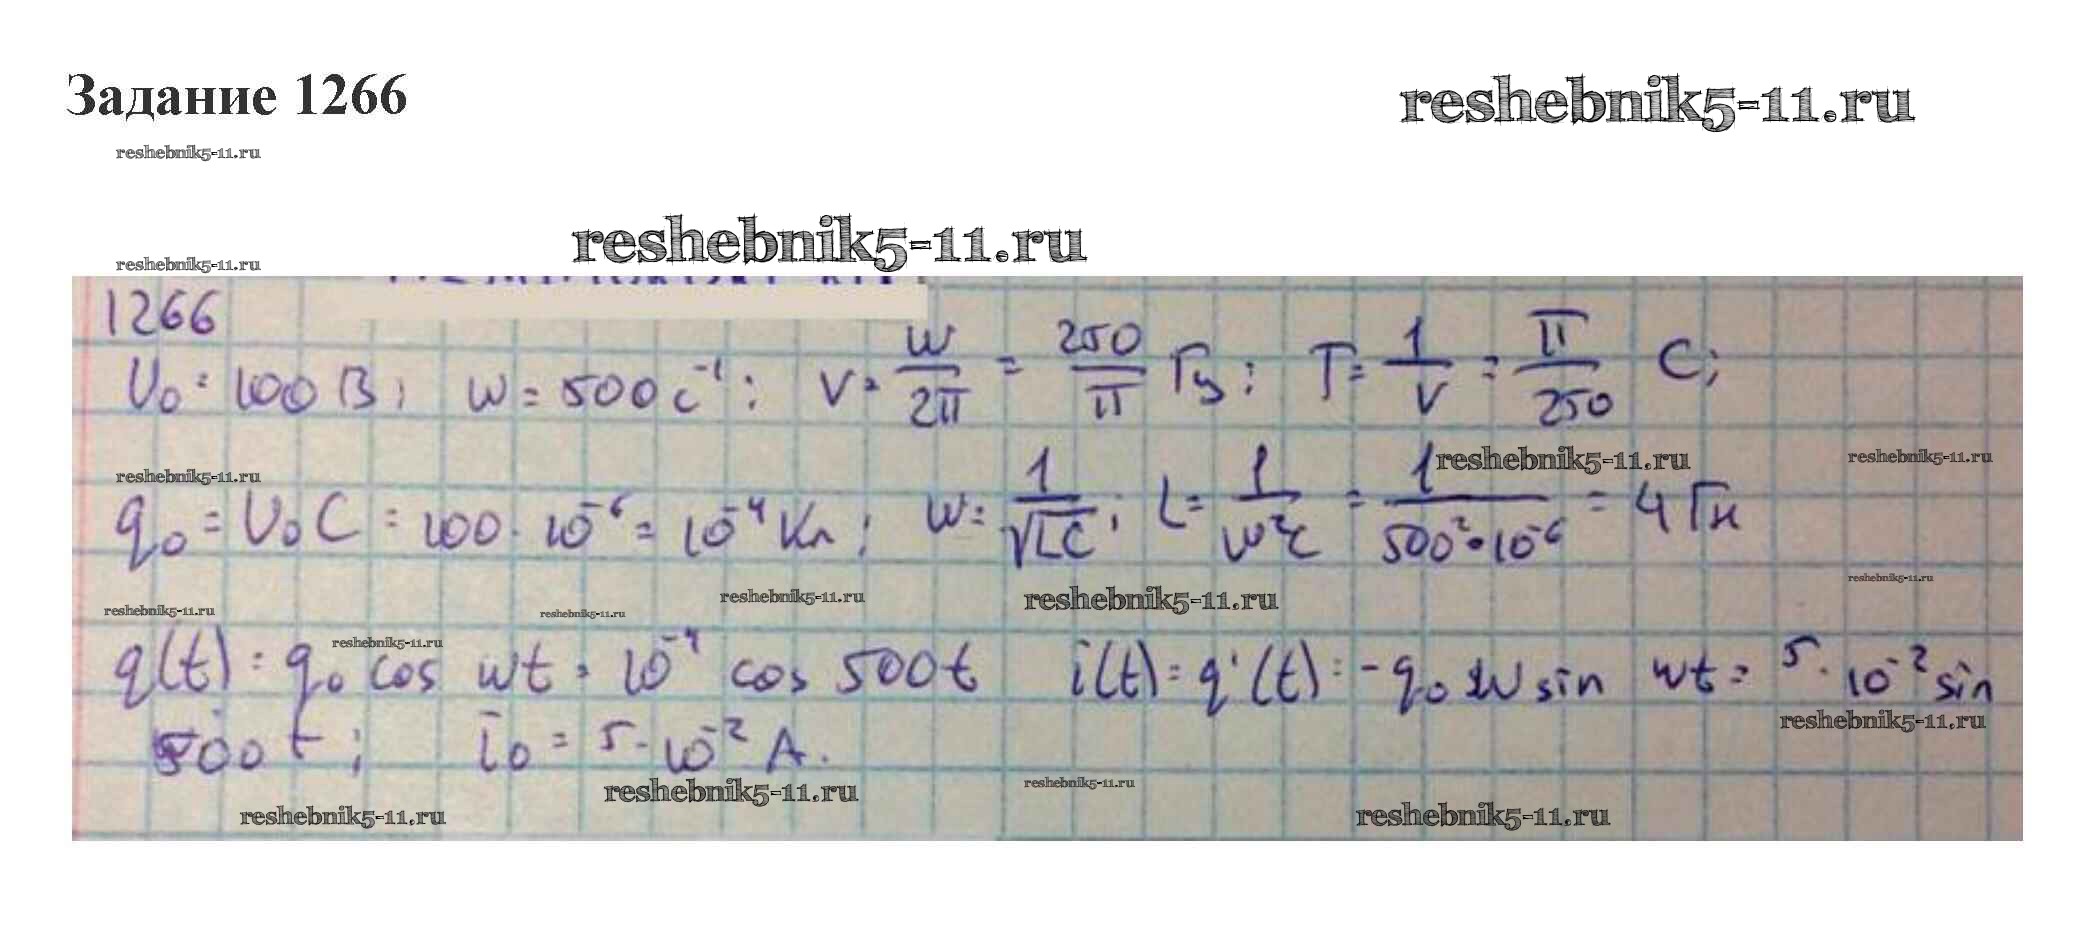 Задание 1266
reshebnik5-11.ru
reshebnik5-11.ru
reshebnik5-11.ru
reshebnik5-11.ru
1266
U₀ = 100 В; w = 500 с⁻¹; ν = w/2π = 250/π Гц; T = 1/ν = π/250 С;
reshebnik5-11.ru reshebnik5-11.ru reshebnik5-11.ru
q₀ = U₀ C = 100 · 10⁻⁶ = 10⁻⁴ Кл; w = 1/√LC; L = 1/w²c = 1/500²·10⁻⁶ = 4 Гн
reshebnik5-11.ru
reshebnik5-11.ru reshebnik5-11.ru reshebnik5-11.ru reshebnik5-11.ru
reshebnik5-11.ru
q(t) = q₀ cos wt = 10⁻⁴ cos 500t i(t) = q'(t) = -q₀ w sin wt = 5 · 10⁻² sin
reshebnik5-11.ru
500 t; i₀ = 5 · 10⁻² А.
reshebnik5-11.ru reshebnik5-11.ru
reshebnik5-11.ru reshebnik5-11.ru